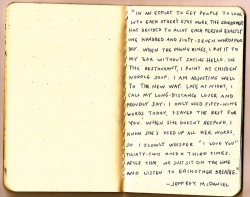 "IN AN EFFORT TO GET PEOPLE TO LOOK
INTO EACH OTHER'S EYES MORE, THE GOVERNMENT
HAS DECIDED TO ALLOT EACH PERSON EXACTLY
ONE HUNDRED AND SIXTY-SEVEN WORDS PER
DAY. WHEN THE PHONE RINGS, I PUT IT TO
MY EAR WITHOUT SAYING HELLO. IN
THE RESTAURANT, I POINT AT CHICKEN
NOODLE SOUP. I AM ADJUSTING WELL
TO THE NEW WAY. LATE AT NIGHT, I
CALL MY LONG-DISTANCE LOVER AND
PROUDLY SAY: I ONLY USED FIFTY-NINE
WORDS TODAY. I SAVED THE REST FOR
YOU. WHEN SHE DOESN'T RESPOND, I
KNOW SHE'S USED UP ALL HER WORDS,
SO I SLOWLY WHISPER "I LOVE YOU"
THIRTY-TWO AND A THIRD TIMES.
AFTER THAT, WE JUST SIT ON THE LINE
AND LISTEN TO EACH OTHER BREATHE."
—JEFFREY McDANIEL